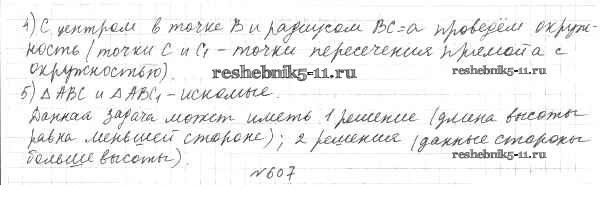 4) С центром в точке В и радиусом ВС=а проведём окруж-
ность (точки С и С₁ - точки пересечения прямой а с
окружностью).
reshebnik5-11.ru
5) △АВС и △АВС₁ - искомые.
Данная задача может иметь 1 решение (длина высоты
равна меньшей стороне); 2 решения (данные стороны
больше высоты).
reshebnik5-11.ru
№607